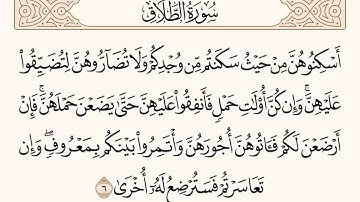 سُورَةُ الطَّلَاقِ
أَسْكِنُوهُنَّ مِنْ حَيْثُ سَكَنتُم مِّن وُجْدِكُمْ وَلَا تُضَآرُّوهُنَّ لِتُضَيِّقُوا۟
عَلَيْهِنَّ ۚ وَإِن كُنَّ أُو۟لَـٰتِ حَمْلٍ فَأَنفِقُوا۟ عَلَيْهِنَّ حَتَّىٰ يَضَعْنَ حَمْلَهُنَّ ۚ فَإِنْ
أَرْضَعْنَ لَكُمْ فَـَٔاتُوهُنَّ أُجُورَهُنَّ ۖ وَأْتَمِرُوا۟ بَيْنَكُم بِمَعْرُوفٍ ۖ وَإِن
تَعَاسَرْتُمْ فَسَتُرْضِعُ لَهُۥٓ أُخْرَىٰ ٦